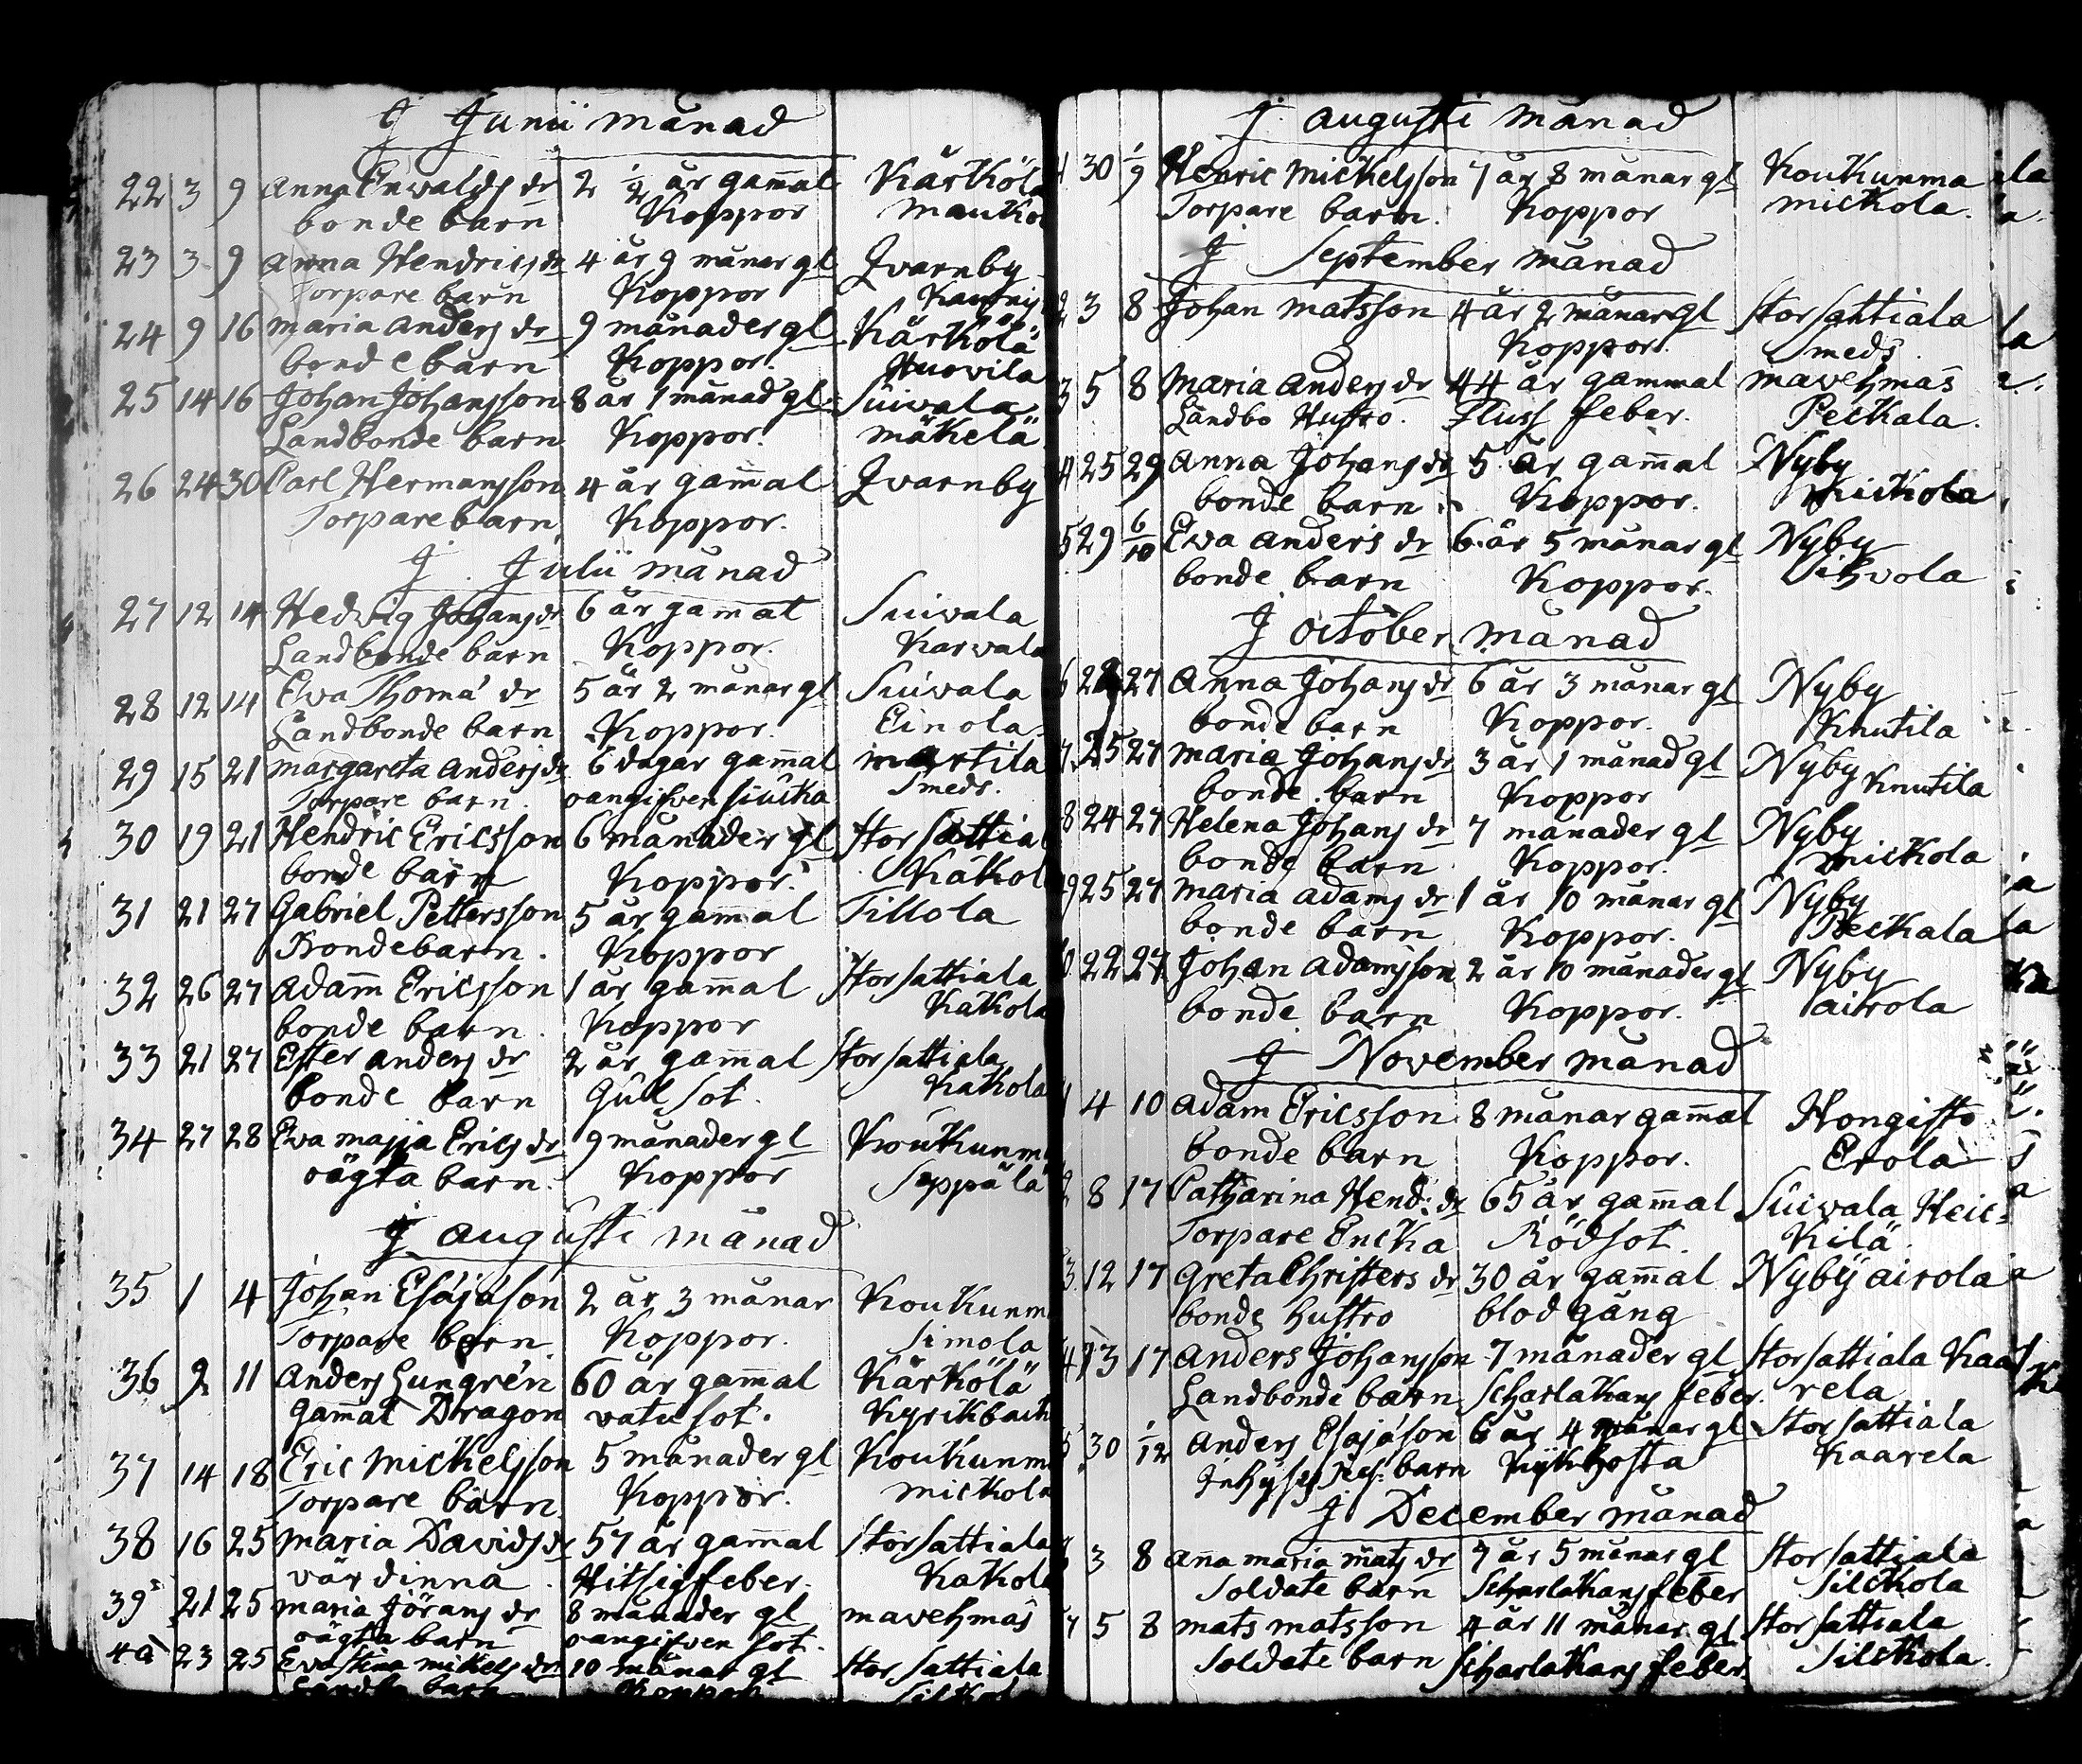 J Junii månad
22 3 9 Anna Enwalds dr 2 1/2 år gam̄al Kärkölä
bonde barn Koppor
23 3 9 Anna Hendrics dr 4 år 9 månar gl Qvarnby
Torpare barn Koppor
24 9 16 Maria Anders dr 9 månader gl Kärkölä
bonde barn Koppor. Huovila
25 14 16 Johan Johansson 8 år 1 månad gl Süwala
Landbonde barn Koppor. Mäkelä
26 24 30 Carl Hermansson 4 år gam̄al Qvarnby
Torpare barn Koppor.
J Julii månad
27 12 14 Hedwig Johans dr 6 år gam̄al Süwala
Landbonde barn Koppor. Karwala
28 12 14 Ewa Thomæ dr 5 år 2 månar gl Süwala
Landbonde barn Koppor. Einola
29 15 21 Margareta Anders dr 6 dagar gam̄al Martila
Torpare barn. oangifven siucka Smeds.
30 19 21 Hendric Ericsson 6 månader gl Stor Sattial
bonde barn Koppor. Kakol
31 21 27 Gabriel Pettersson 5 år gam̄al Tillola
Bondebarn. Koppor
32 26 27 Adam̄ Ericsson 1 år gam̄al Stor Sattiala
bonde barn. Koppor Kakola
33 21 27 Ester Anders dr 2 år gam̄al Stor Sattiala
bonde barn Gull sot. Kakola
34 27 28 Ewa Maja Erics dr 9 månader gl Koukunm
oägta barn. Koppor Seppälä
J Augusti månad
35 1 4 Johan Esajason 2 år 3 månar Koukunm
Torpare barn Koppor. Simola
36 2 11 Anders Lungrén 60 år gam̄al Kärkölä
Gam̄al Dragon vatu sot.
37 14 18 Eric Mickelsson 5 månader gl Koukunm
Torpare barn Koppor. Mickola
38 16 25 Maria Davids dr 57 år gam̄al Stor Sattiala
värdinna Hitsig feber. Kakola
39 21 25 Maria Jörans dr 8 månader gl Mavehmas
oägta barn oangifven sot.
40 23 25 Eva Stina Mikels dr 10 månar gl Stor Sattiala
barn Koppor
J Augusti månad
30 1/9 Henric Mickelsson 7 år 8 månar gl Koukunma
Torpare barn. Koppor Mickola.
J September månad
2 3 8 Johan Matsson 4 år 2 månar gl Stor Sattiala
Koppor. Smeds
3 5 8 Maria Anders dr 44 år gammal Mavehmas
Landbo Hustro. Fluss feber. Peckala.
4 25 29 Anna Johans dr 5 år gam̄al Nyby
bonde barn Koppor. Mickola
5 29 6/10 Ewa Anders dr 6 år 5 månar gl Nyby
bonde barn Koppor. Sihvola
J October månad
6 27 Anna Johans dr 6 år 3 månar gl Nyby
bonde barn Koppor. Knutila
7 25 27 Maria Johans dr 3 år 1 månad gl Nyby Knutila
bonde barn Koppor
8 24 27 Helena Johans dr 7 månader gl Nyby
bonde barn Koppor. Mickola
9 25 27 Maria Adams dr 1 år 10 månar gl Nyby
bonde barn Koppor. Peckala
22 27 Johan Adamsson 2 år 10 månader gl Nyby
bonde barn Koppor. Airola
J November månad
4 10 Adam Ericsson 8 månar gam̄al Hongisto
bonde barn Koppor. Erola
2 8 17 Catharina Hend: dr 65 år gam̄al Süwala Heic=
Torpare Encka Rödsot. kilä
3 12 17 Greta Christers dr 30 år gam̄al Nyby Airola
bonde hustro blod gång
4 13 17 Anders Johansson 7 månader gl Stor Sattiala Kaa
Landbonde barn Scharlakans feber. rela
5 30 1/12 Anders Esajason 6 år 4 månar gl Stor Sattiala
Inhyses barn Kikhosta Kaarela
J December månad
3 8 Anna Maria Mats dr 7 år 5 månar gl Stor Sattiala
Soldate barn Scharlakans feber Silckola
7 5 8 Mats Matsson 4 år 11 månar gl Stor Sattiala
Soldate barn Scharlakans feber. Silckola.